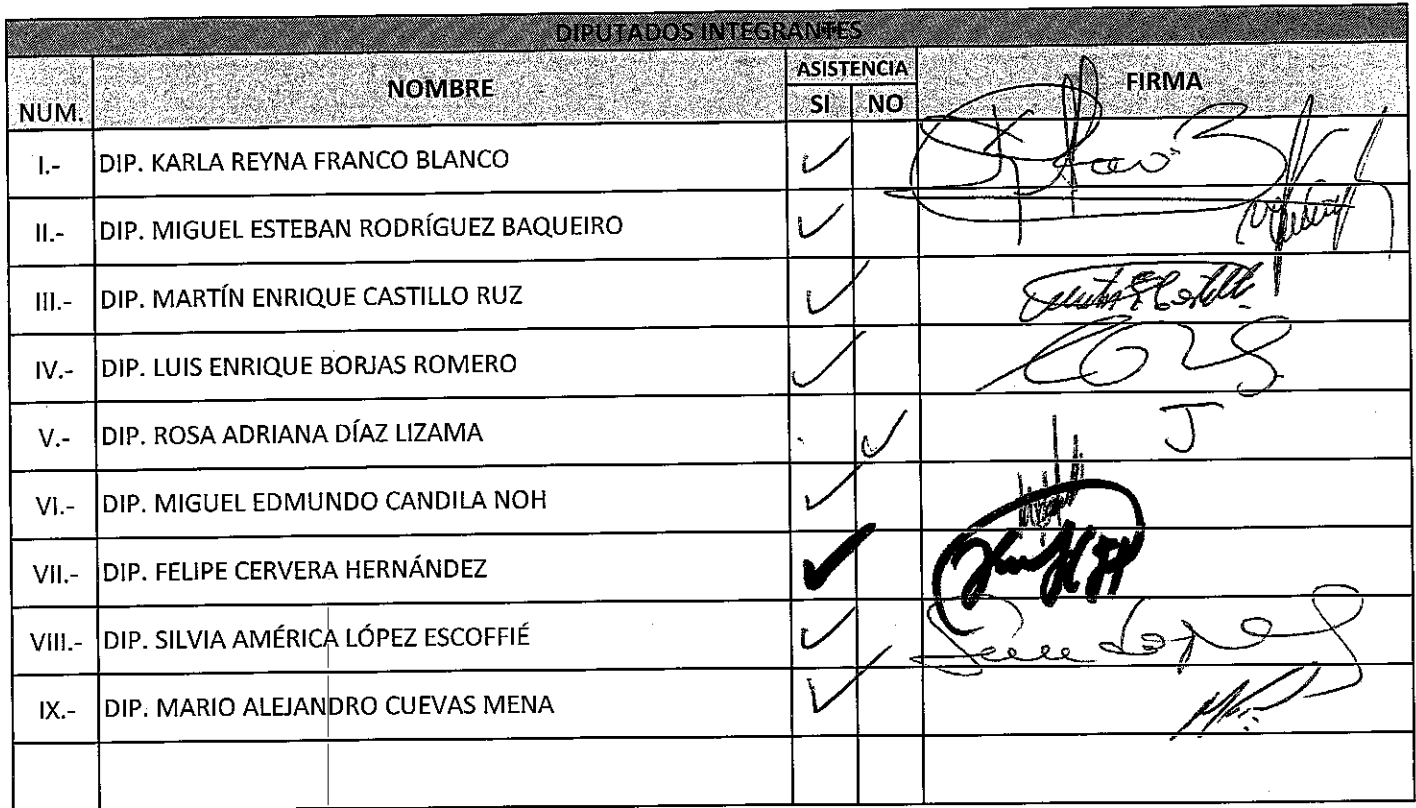 DIPUTADOS INTEGRANTES
NUM. NOMBRE ASISTENCIA FIRMA
SI NO
I.- DIP. KARLA REYNA FRANCO BLANCO ✓
II.- DIP. MIGUEL ESTEBAN RODRÍGUEZ BAQUEIRO ✓
III.- DIP. MARTÍN ENRIQUE CASTILLO RUZ ✓
IV.- DIP. LUIS ENRIQUE BORJAS ROMERO ✓
V.- DIP. ROSA ADRIANA DÍAZ LIZAMA ✓ J
VI.- DIP. MIGUEL EDMUNDO CANDILA NOH ✓
VII.- DIP. FELIPE CERVERA HERNÁNDEZ ✓
VIII.- DIP. SILVIA AMÉRICA LÓPEZ ESCOFFIÉ ✓
IX.- DIP. MARIO ALEJANDRO CUEVAS MENA ✓